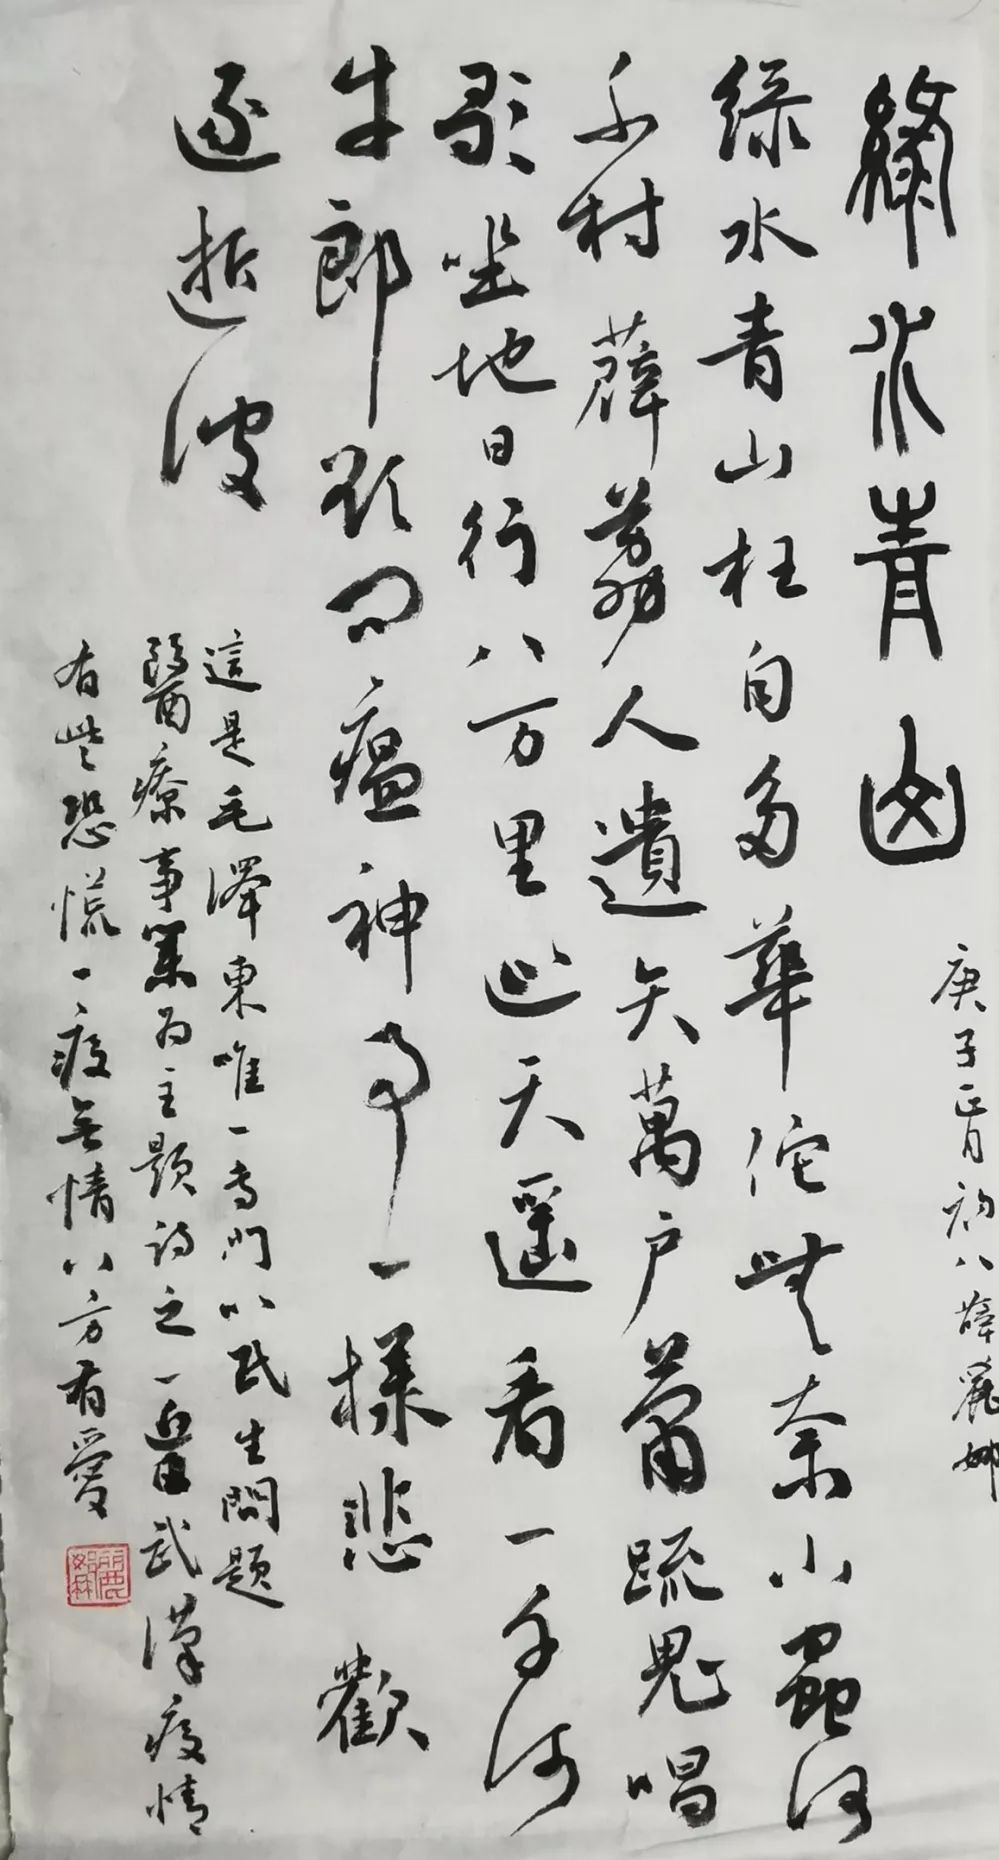 綠水青山
庚子正月初八薛麗娜
綠水青山枉自多華佗無奈小蟲何
千村薜荔人遺矢萬戶蕭疏鬼唱
歌坐地日行八万里巡天遙看一千河
牛郎欲問瘟神事一樣悲歡
逐逝波
這是毛澤東唯一專門以民生問題
醫療事業為主題詩之一近日武漢疫情
有些恐慌一疫無情八方有愛